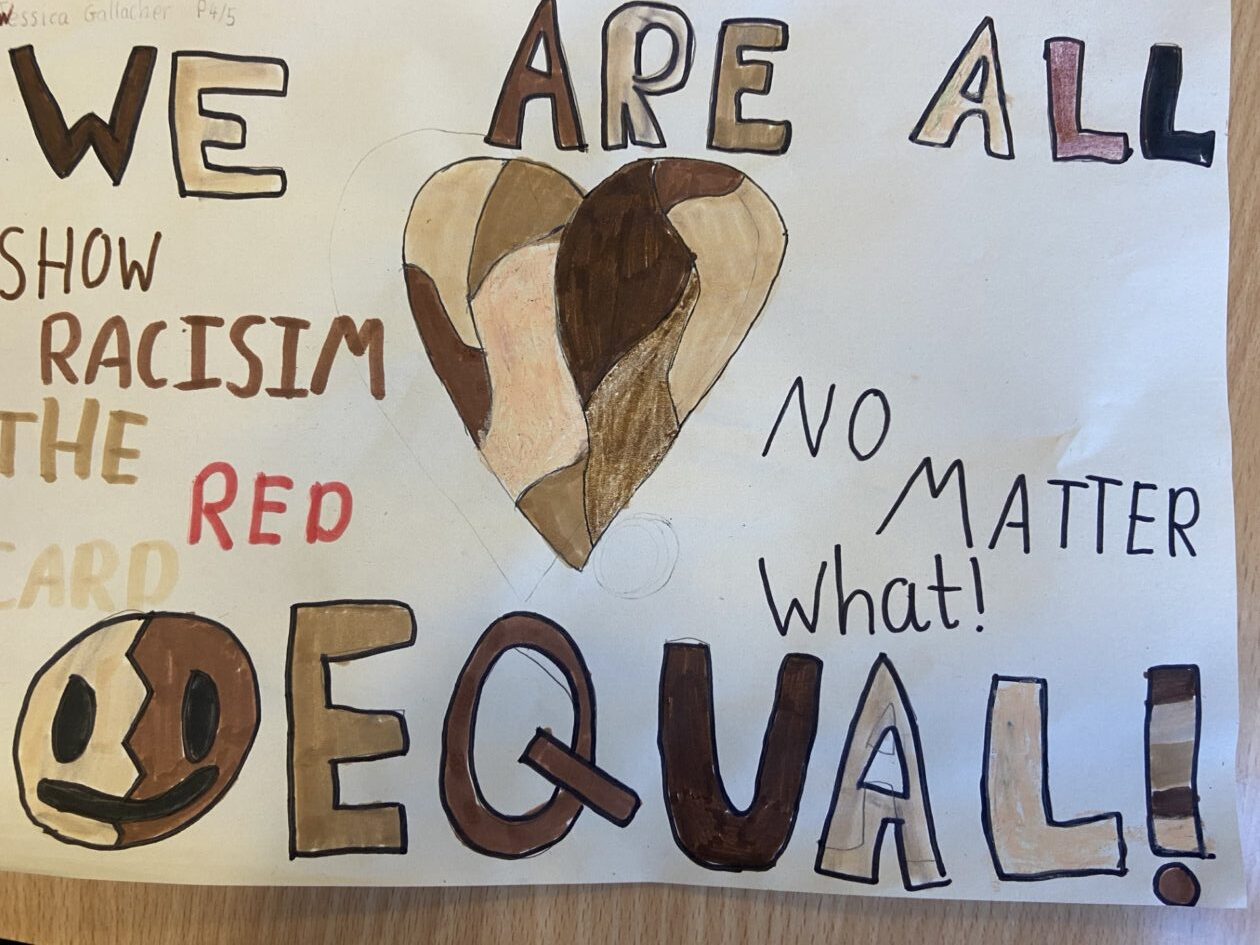 Jessica Gallacher P4/5
WE ARE ALL
SHOW
RACISIM
THE
RED
CARD
NO
MATTER
What!
EQUAL!